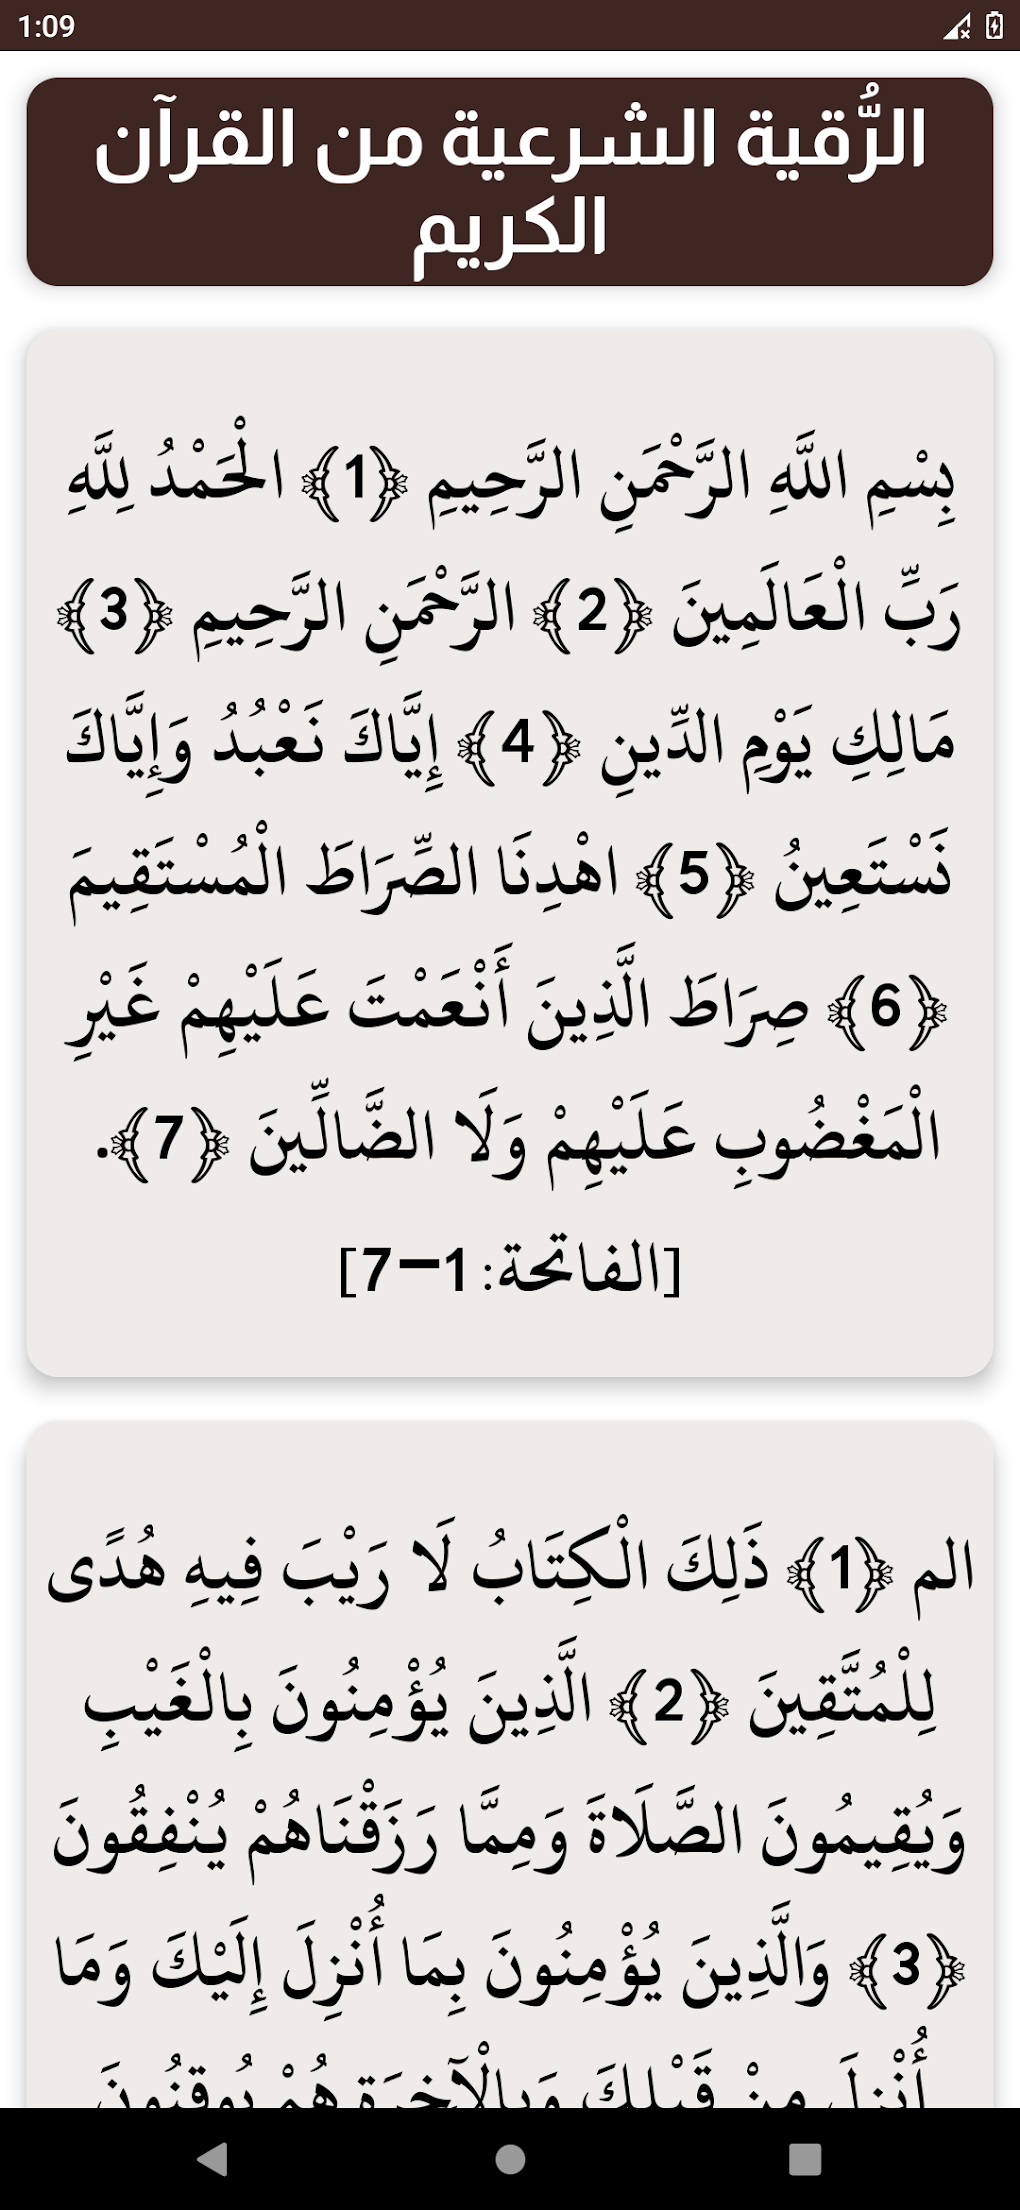 1:09
الرُّقية الشرعية من القرآن
الكريم
بِسْمِ اللَّهِ الرَّحْمَنِ الرَّحِيمِ ﴿1﴾ الْحَمْدُ لِلَّهِ
رَبِّ الْعَالَمِينَ ﴿2﴾ الرَّحْمَنِ الرَّحِيمِ ﴿3﴾
مَالِكِ يَوْمِ الدِّينِ ﴿4﴾ إِيَّاكَ نَعْبُدُ وَإِيَّاكَ
نَسْتَعِينُ ﴿5﴾ اهْدِنَا الصِّرَاطَ الْمُسْتَقِيمَ
﴿6﴾ صِرَاطَ الَّذِينَ أَنْعَمْتَ عَلَيْهِمْ غَيْرِ
الْمَغْضُوبِ عَلَيْهِمْ وَلَا الضَّالِّينَ ﴿7﴾.
[الفاتحة: 1–7]
الم ﴿1﴾ ذَلِكَ الْكِتَابُ لَا رَيْبَ فِيهِ هُدًى
لِلْمُتَّقِينَ ﴿2﴾ الَّذِينَ يُؤْمِنُونَ بِالْغَيْبِ
وَيُقِيمُونَ الصَّلَاةَ وَمِمَّا رَزَقْنَاهُمْ يُنْفِقُونَ
﴿3﴾ وَالَّذِينَ يُؤْمِنُونَ بِمَا أُنْزِلَ إِلَيْكَ وَمَا
أُنْزِلَ مِنْ قَبْلِكَ وَبِالْآخِرَةِ هُمْ يُوقِنُونَ